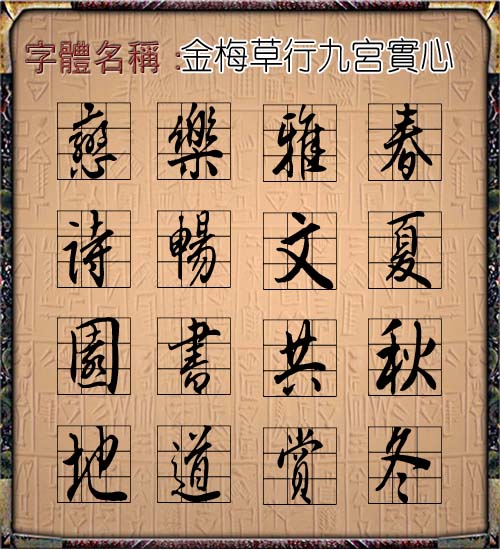 字體名稱 :金梅草行九宮實心
春夏秋冬
雅文共賞
樂暢書道
戀詩園地